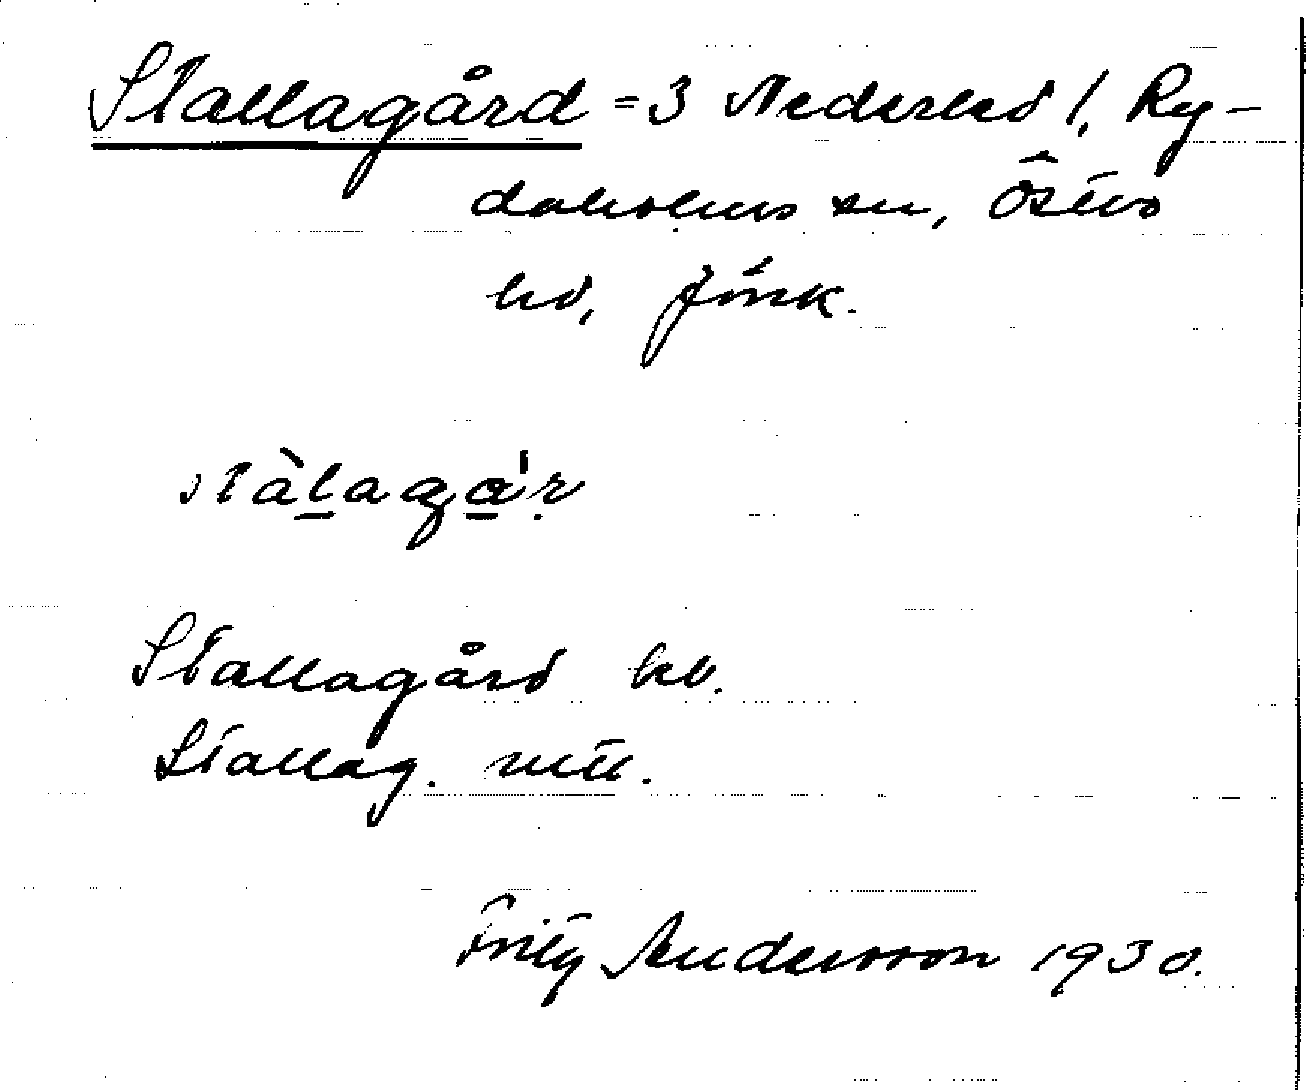 Stallagård = 3 Nederled l. Ry-
daholms sn, Östbo
hd, Jönk.
stàlagá'r
Stallagård kb.
Stallag. mtl.
Fritz Andersson 1930.